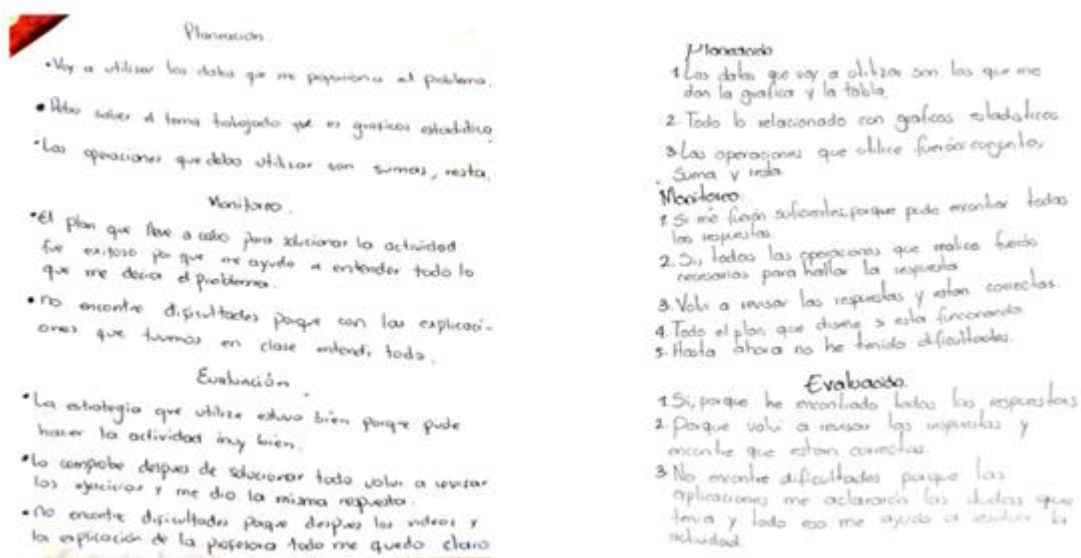 Planeación
• Voy a utilizar los datos que me proporciona el problema.
• Debo saber el tema trabajado que es graficos estadistico
• Las operaciones que debo utilizar son sumas, resta.
Monitoreo.
• El plan que lleve a cabo para solucionar la actividad
fue exitoso por que me ayudo a entender todo lo
que me decia el problema.
• no encontre dificultades porque con las explicaci-
ones que tuvimos en clase entendi todo.
Evaluación
• La estrategia que utilize estuvo bien porque pude
hacer la actividad muy bien.
• Lo comprobe despues de solucionar todo volvi a revisar
los ejercicios y me dio la misma respuesta.
• no encontre dificultades porque despues los videos y
la explicación de la profesora todo me quedo claro
Planeacido
1 Los datos que voy a utilizar son los que me
dan la grafica y la tabla.
2. Todo lo relacionado con graficas estadisticas.
3 Las operaciones que utilice fuerón conjunto,
Suma y resta.
Monitoreo.
1 Si me fuerón suficientes, porque pude encontrar todas
las respuestas.
2. Si, todas las operaciones que realice fuerón
necesarias para hallar la respuesta
3. Volvi a revisar las respuestas y estan correctas.
4. Todo el plan que diseñe si esta funcionando
5. Hasta ahora no he tenido dificultades.
Evaluacido.
1 Si, porque he encontrado todas las respuestas
2. Porque volvi a revisar las respuestas y
encontre que estan correctas
3 No encontre dificultades porque las
explicaciones me aclararón las dudas que
tenia y todo eso me ayudo a resolver la
actividad.